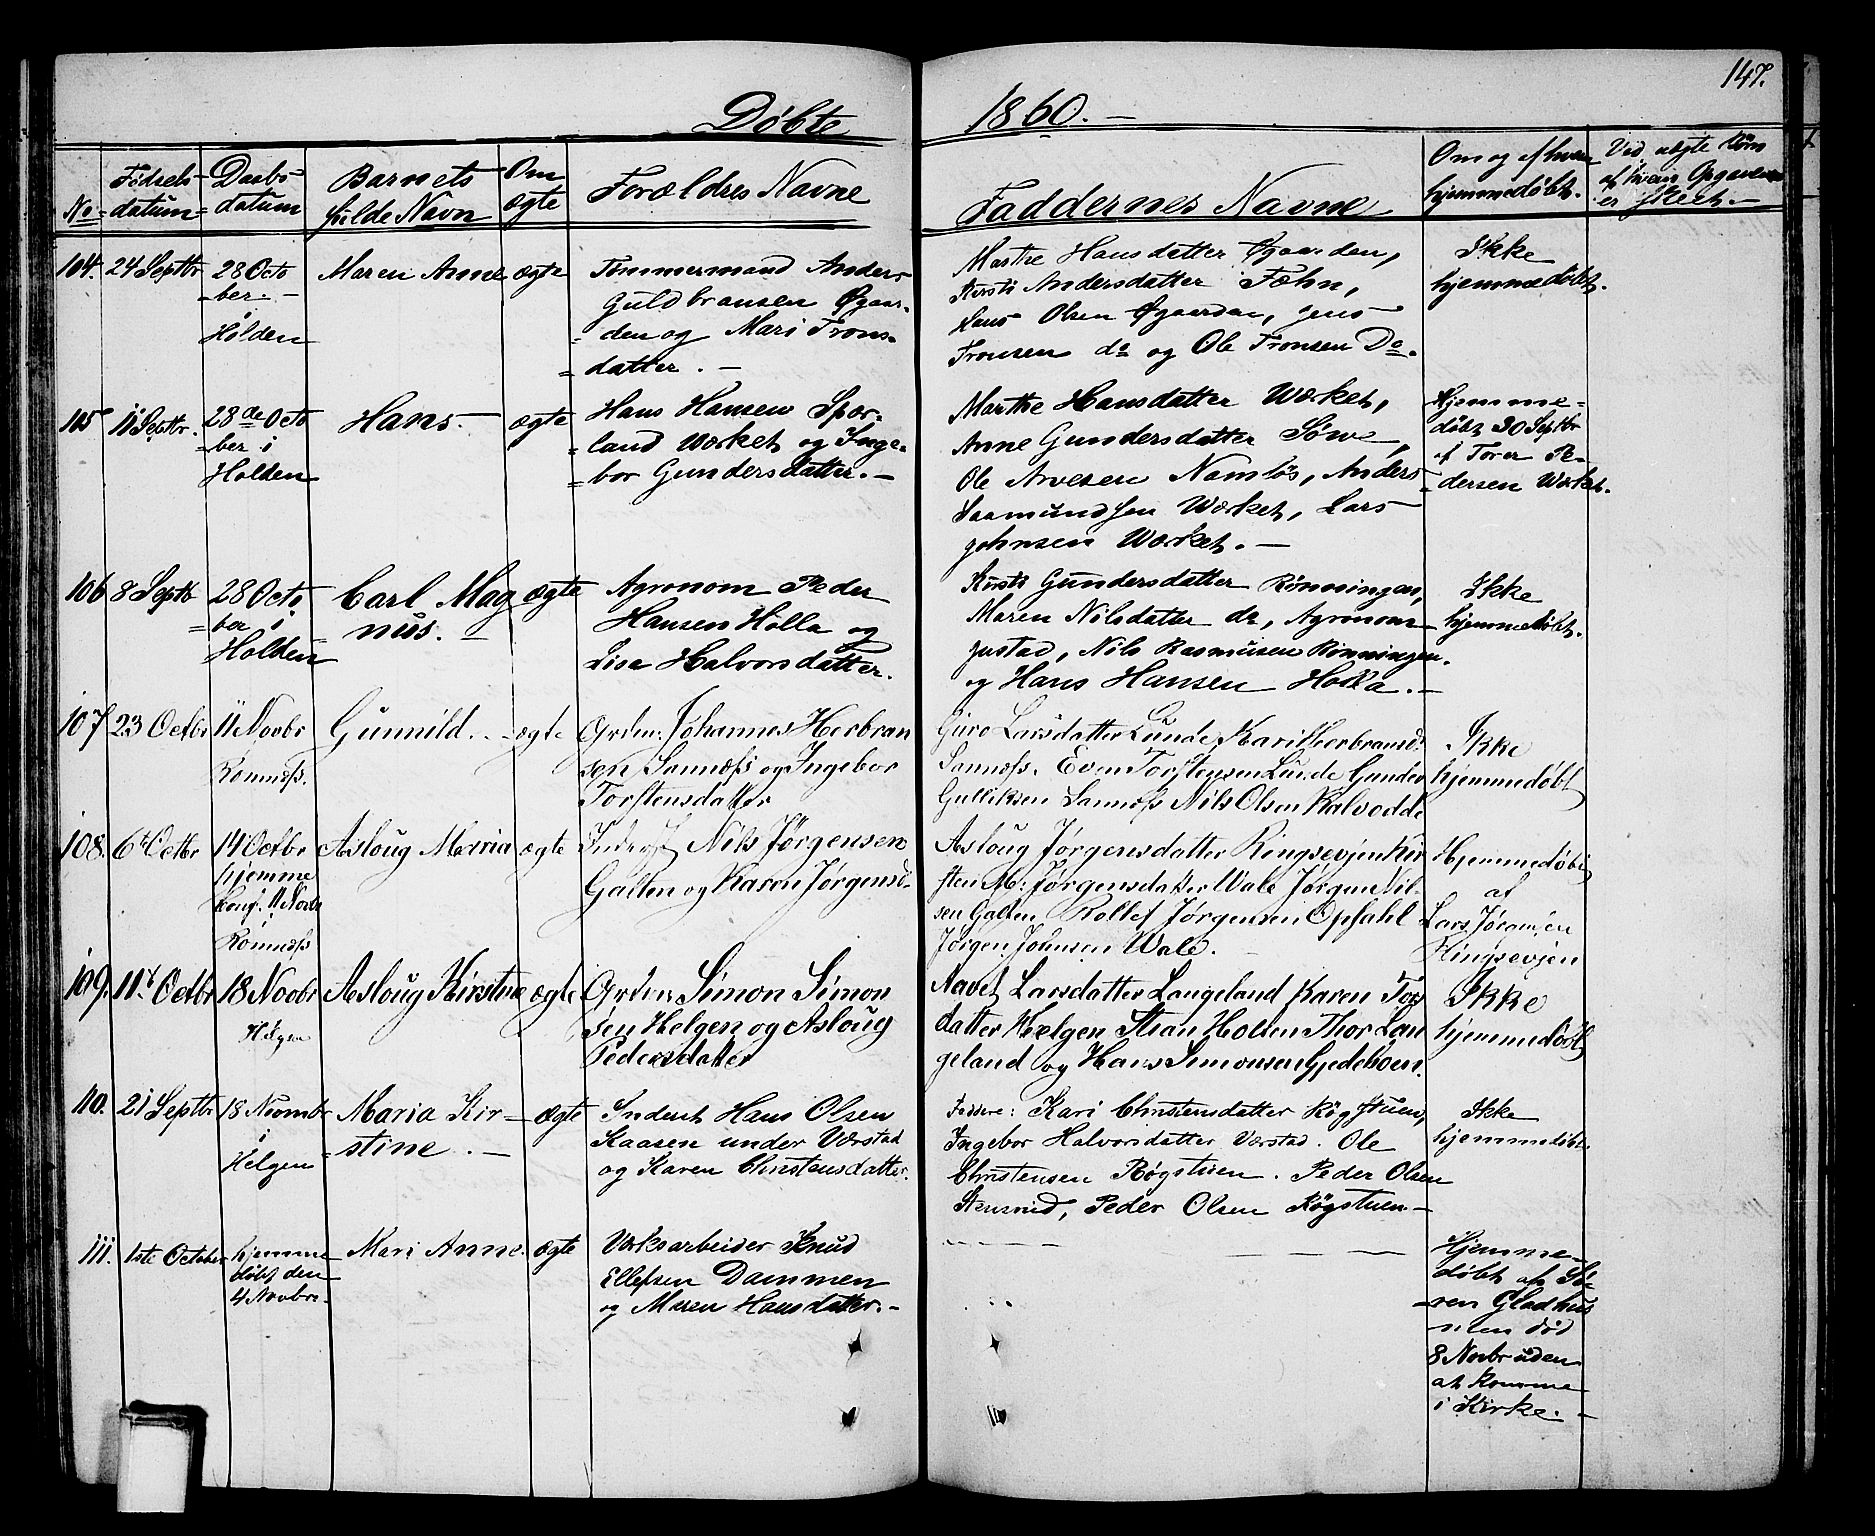 147.
Døbte 1860.
No. Fødsels-datum Daabs-datum Barnets fulde Navn Om ægte Forældres Navne Faddernes Navne Om og af hvem hjemmedøbt. Ved uægte Børn af hvem Opgaven er skeet.
104. 24 Septbr 28 Octo- Maren Anne ægte Tømmermand Anders
ber i
Holden
Guldbransen Øgaar-
den og Mari Trons-
datter.
Marthe Hansdatter Øgaarden,
Kirsti Andersdatter Fæhn,
Hans Olsen Øgaarden, Jens
Tronsen do og Ole Tronsen Do.
Ikke
hjemmedøbt.
105 11 Septbr. 28de Octo Hans. ægte Hans Hansen Spør-
ber i
Holden
land Værket og Inge-
bor Gundersdatter.
Marthe Hansdatter Værket,
Anne Gundersdatter Søve,
Ole Arvesen Namløs, Anders
Saamundsen Værket, Lars
Johnsen Værket.
Hjemme-
døbt 30 Septbr
af Torer Pe-
dersen Værket.
106 8 Septb 28 Octo Carl Mag ægte Agronom Peder
ber i
Holden
nus.
Hansen Holla og
Lisa Halvorsdatter.
Kirsti Gundersdatter Rønningen,
Maren Nilsdatter do, Agronom
Justad, Nils Rasmusen Rønningen.
og Hans Hansen Holla.
Ikke
hjemmedøbt.
107 23 Octbr 11 Novbr Gunnild. ægte Grdm: Johannes Herbran
Romnæss.
sen Sannæss og Ingebor
Torstensdatter
Guro Larsdatter Lunde, Kari Herbransd:
Sannæss. Even Torstensen Lunde Gunder
Gulliksen Sannæss Nils Olsen Kalvodde
Ikke
hjemmedøbt
108. 6t Octbr 14 Octbr Asloug Maria ægte Inderst Nils Jørgensen
hjemme
Konf. 11 Novbr
Romnæss
Galten og Karen Jørgensd.
Asloug Jørgensdatter Ringsevjen Kir
sten M: Jørgensdatter Wale Jørgen Nil-
sen Galten Rollef Jørgensen Opsahl
Jørgen Johnsen Wale.
Hjemmedøbt
af
Lars
Ringsevjen
109. 11t Octbr 18 Novbr Asloug Kirstine ægte Grdm: Simon Simon
Helgen
sen Helgen og Asloug
Pedersdatter
Aavet Larsdatter Langeland Karen Tors
datter Helgen Stian Holten Thor Lan
geland og Hans Simonsen Gjedeboen.
Ikke
hjemmedøbt
110. 21 Septbr 18 Novmbr Maria Kir- ægte Inderst Hans Olsen
i
Helgen
stine.
Kaasen under Værstad
og Karen Christensdatter.
Faddere: Kari Christensdatter Røgstuen,
Ingebor Halvorsdatter Værstad. Ole
Christensen Røgstuen. Peder Olsen
Stensrud, Peder Olsen Røgstuen
Ikke
hjemmedøbt.
111. 1ste October hjemme Mari Anne. ægte Værksarbeider Knud
døbt den
4 Novbr.
Ellefsen Dammen
og Maren Hansdatter.
Hjemme-
døbt af Sø-
ren Gladhus
men død
8 Novbr uden
at komme
i Kirke.